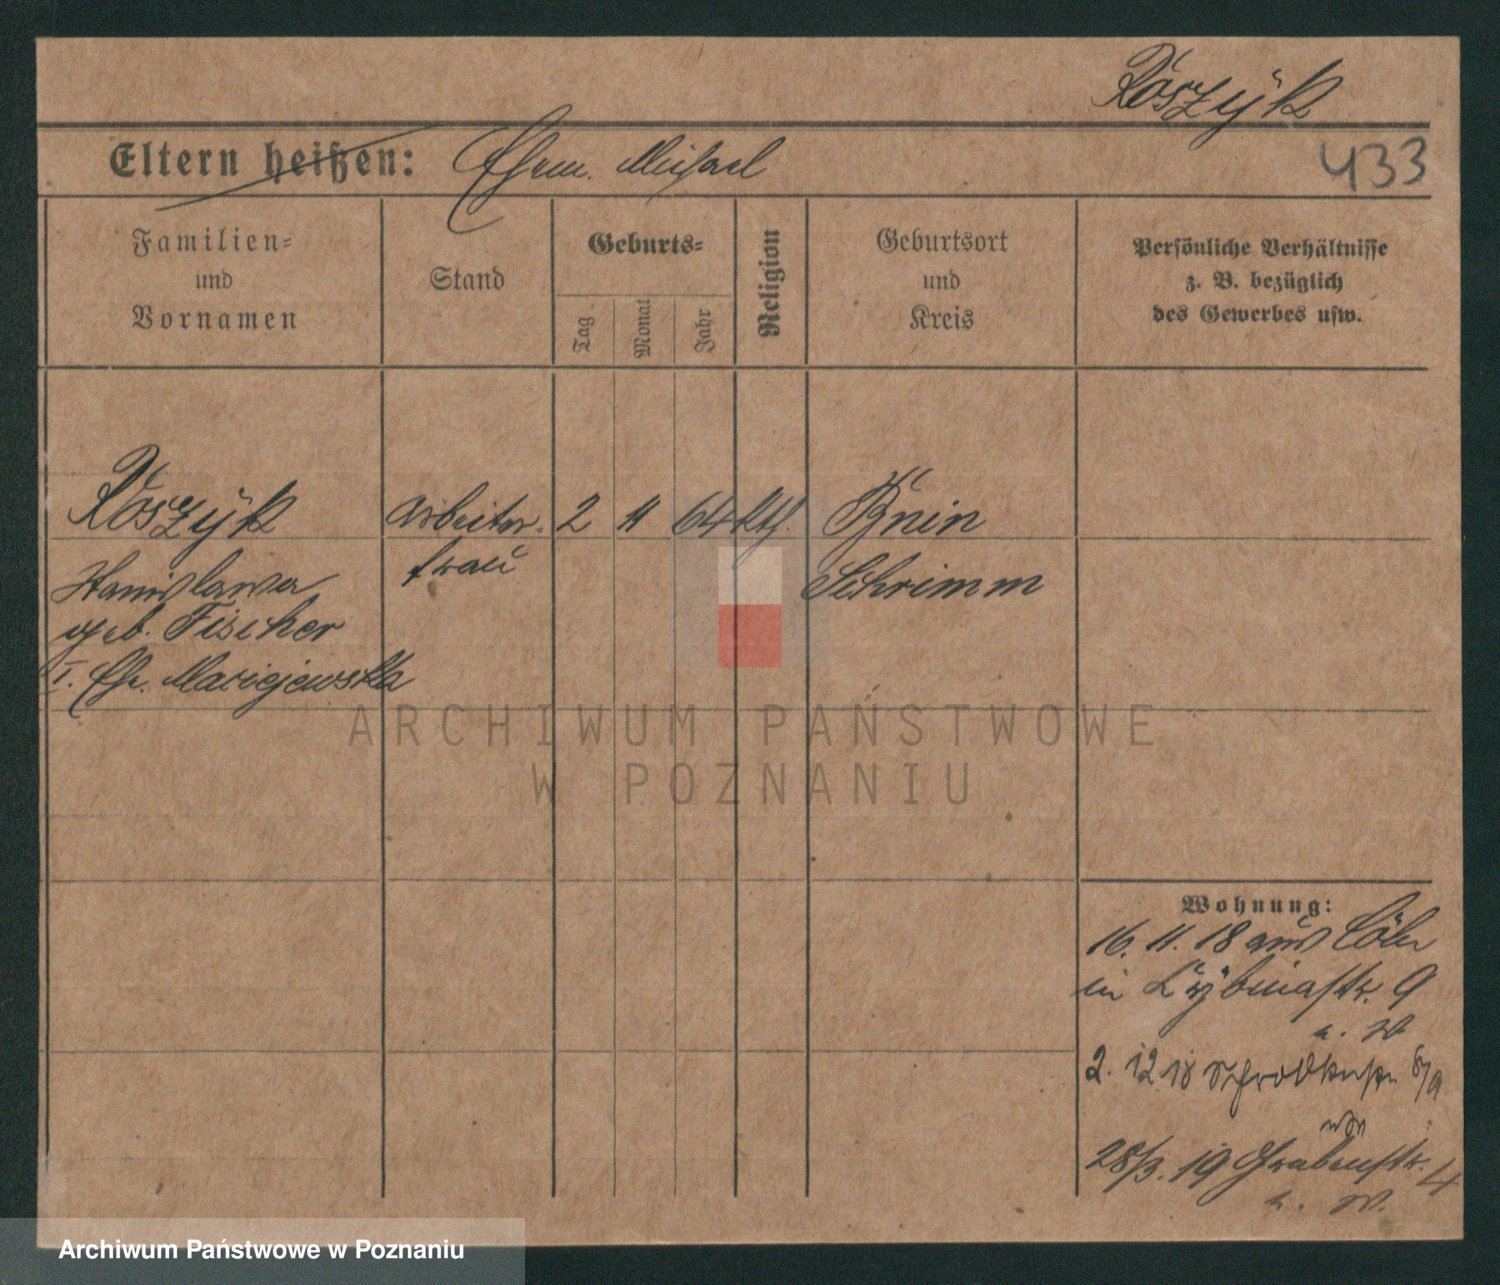 Rószÿk
Eltern heißen: Ehem. Michael
433
Familien-
und
Vornamen
Stand
Geburts-
Tag
Monat
Jahr
Religion
Geburtsort
und
Kreis
Persönliche Verhältnisse
z. B. bezüglich
des Gewerbes usw.
Rószÿk
Arbeiter-
frau
2
11
64
kth.
Bnin
Schrimm
Stanislawa
geb. Fischer
I. Eh. Maciejewska
ARCHIWUM PAŃSTWOWE
W POZNANIU
Wohnung:
16. 11. 18 aus Cöln
in Rÿbinastr. 9
2. 12 18
28/3. 19 Grabenstr. 4
Archiwum Państwowe w Poznaniu